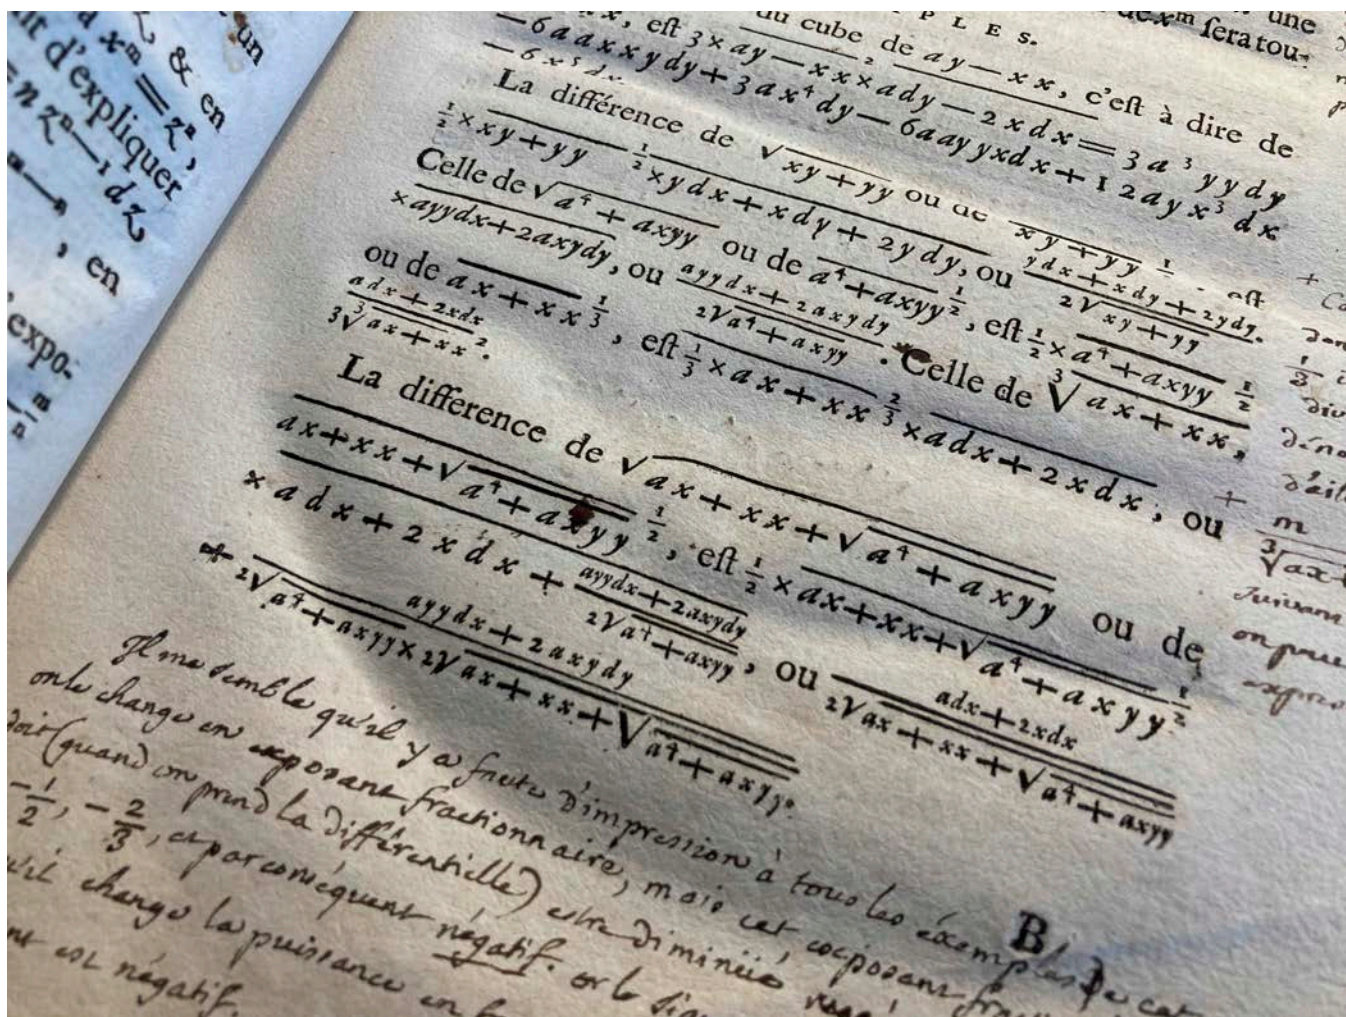 un
Z, & en
a xᵐ = zⁿ,
it d'expliquer
= n zⁿ⁻¹ dz
, en
expo-
m
n
P L E S.
de xᵐ ſera tou-
une
du cube de ay — xx, c'eſt à dire de
xx, eſt 3 × ay — xx² × ady — 2xdx = 3a³yydy
— 6aaxxydy + 3ax⁴dy — 6aayyxdx + 12ayx³dx
— 6x⁵dx
La différence de √xy + yy ou de xy + yy ½ eſt
½ × xy + yy ½ × ydx + xdy + 2ydy, ou ydx + xdy + 2ydy / 2√xy + yy.
Celle de √a⁴ + axyy ou de a⁴ + axyy ½, eſt ½ × a⁴ + axyy ½
× ayydx + 2axydy, ou ayydx + 2axydy / 2√a⁴ + axyy. Celle de ∛ax + xx,
ou de ax + xx ⅓, eſt ⅓ × ax + xx ⅔ × adx + 2xdx, ou
adx + 2xdx / 3∛ax + xx².
La difference de √ax + xx + √a⁴ + axyy ou de
ax + xx + √a⁴ + axyy ½, eſt ½ × ax + xx + √a⁴ + axyy ½
× adx + 2xdx + ayydx + 2axydy / 2√a⁴ + axyy, ou adx + 2xdx / 2√ax + xx + √a⁴ + axyy
+ ayydx + 2axydy / 2√a⁴ + axyy × 2√ax + xx + √a⁴ + axyy.
B
Il me semble qu'il y a faute d'impression à tous les exemples de cet
on le change en exposant fractionnaire, mais cet exposant
doit (quand on prend la différentielle) estre diminüé
— ½, — ⅔, et par conséquent négatif. or le
change la puissance en
est négatif.
+
⅓
+
m
∛ax +
suivant
on